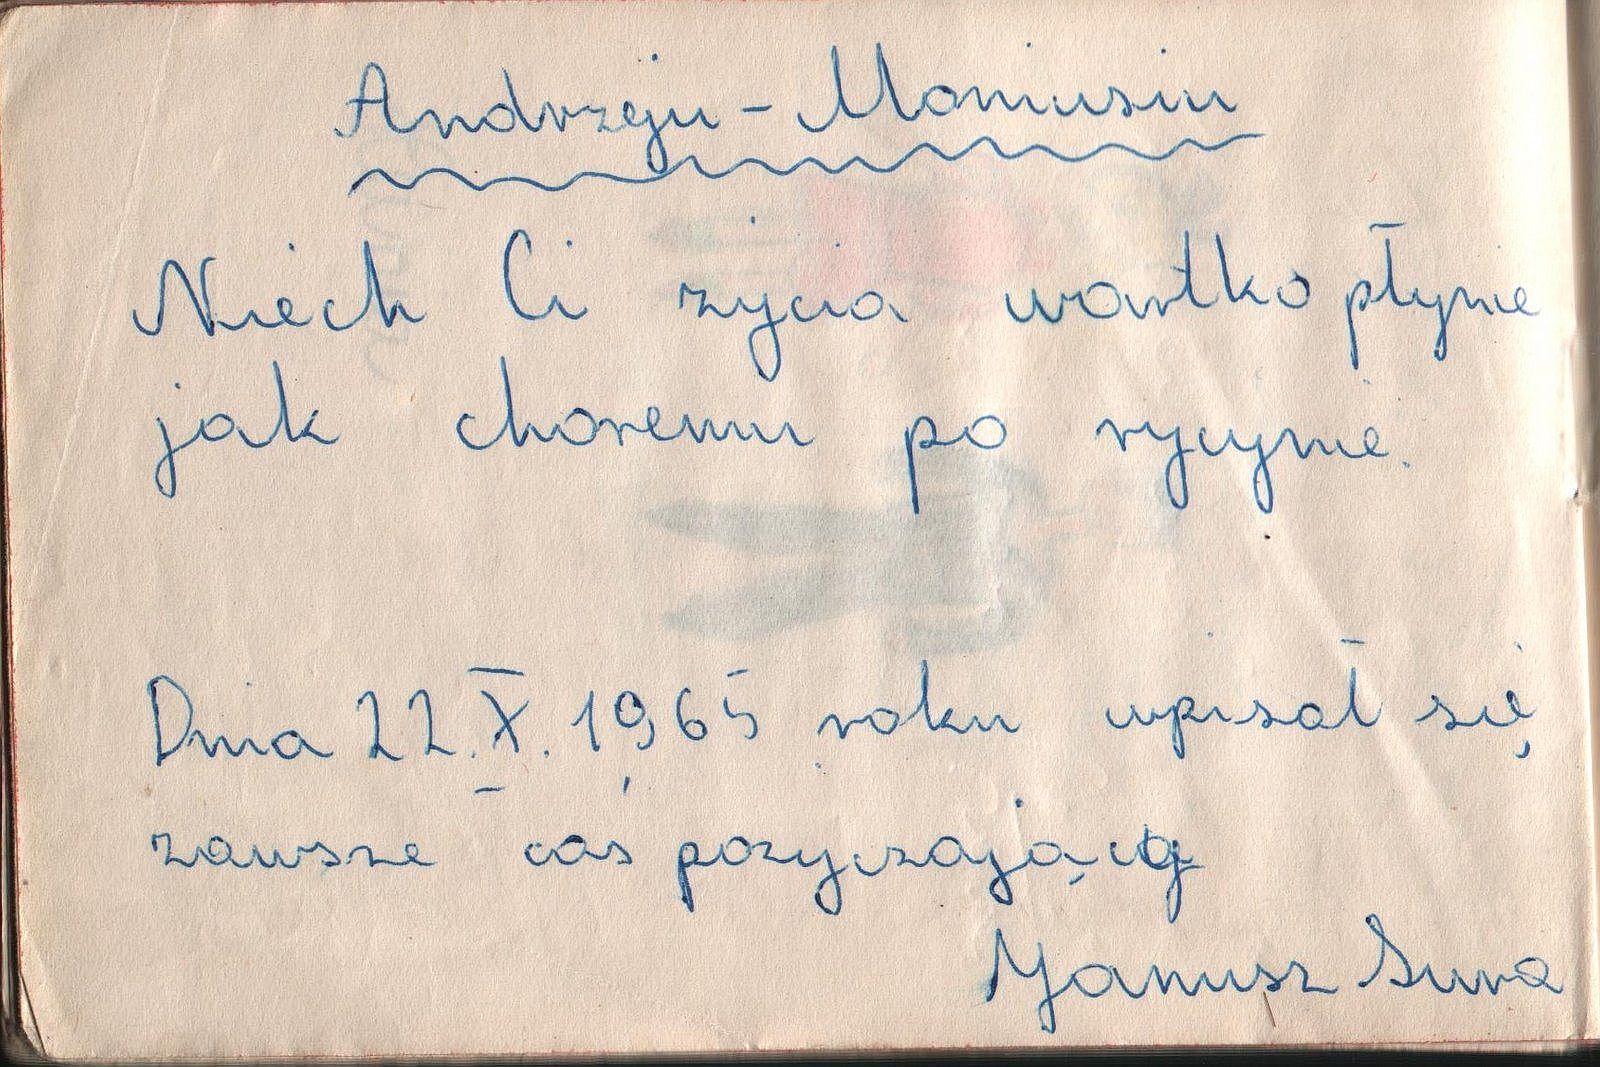 Andrzeju - Moniusiu
Niech Ci życia wartko płynie
jak choremu po rycynie.
Dnia 22.X.1965 roku wpisał się
zawsze coś pożyczający
Janusz Sura